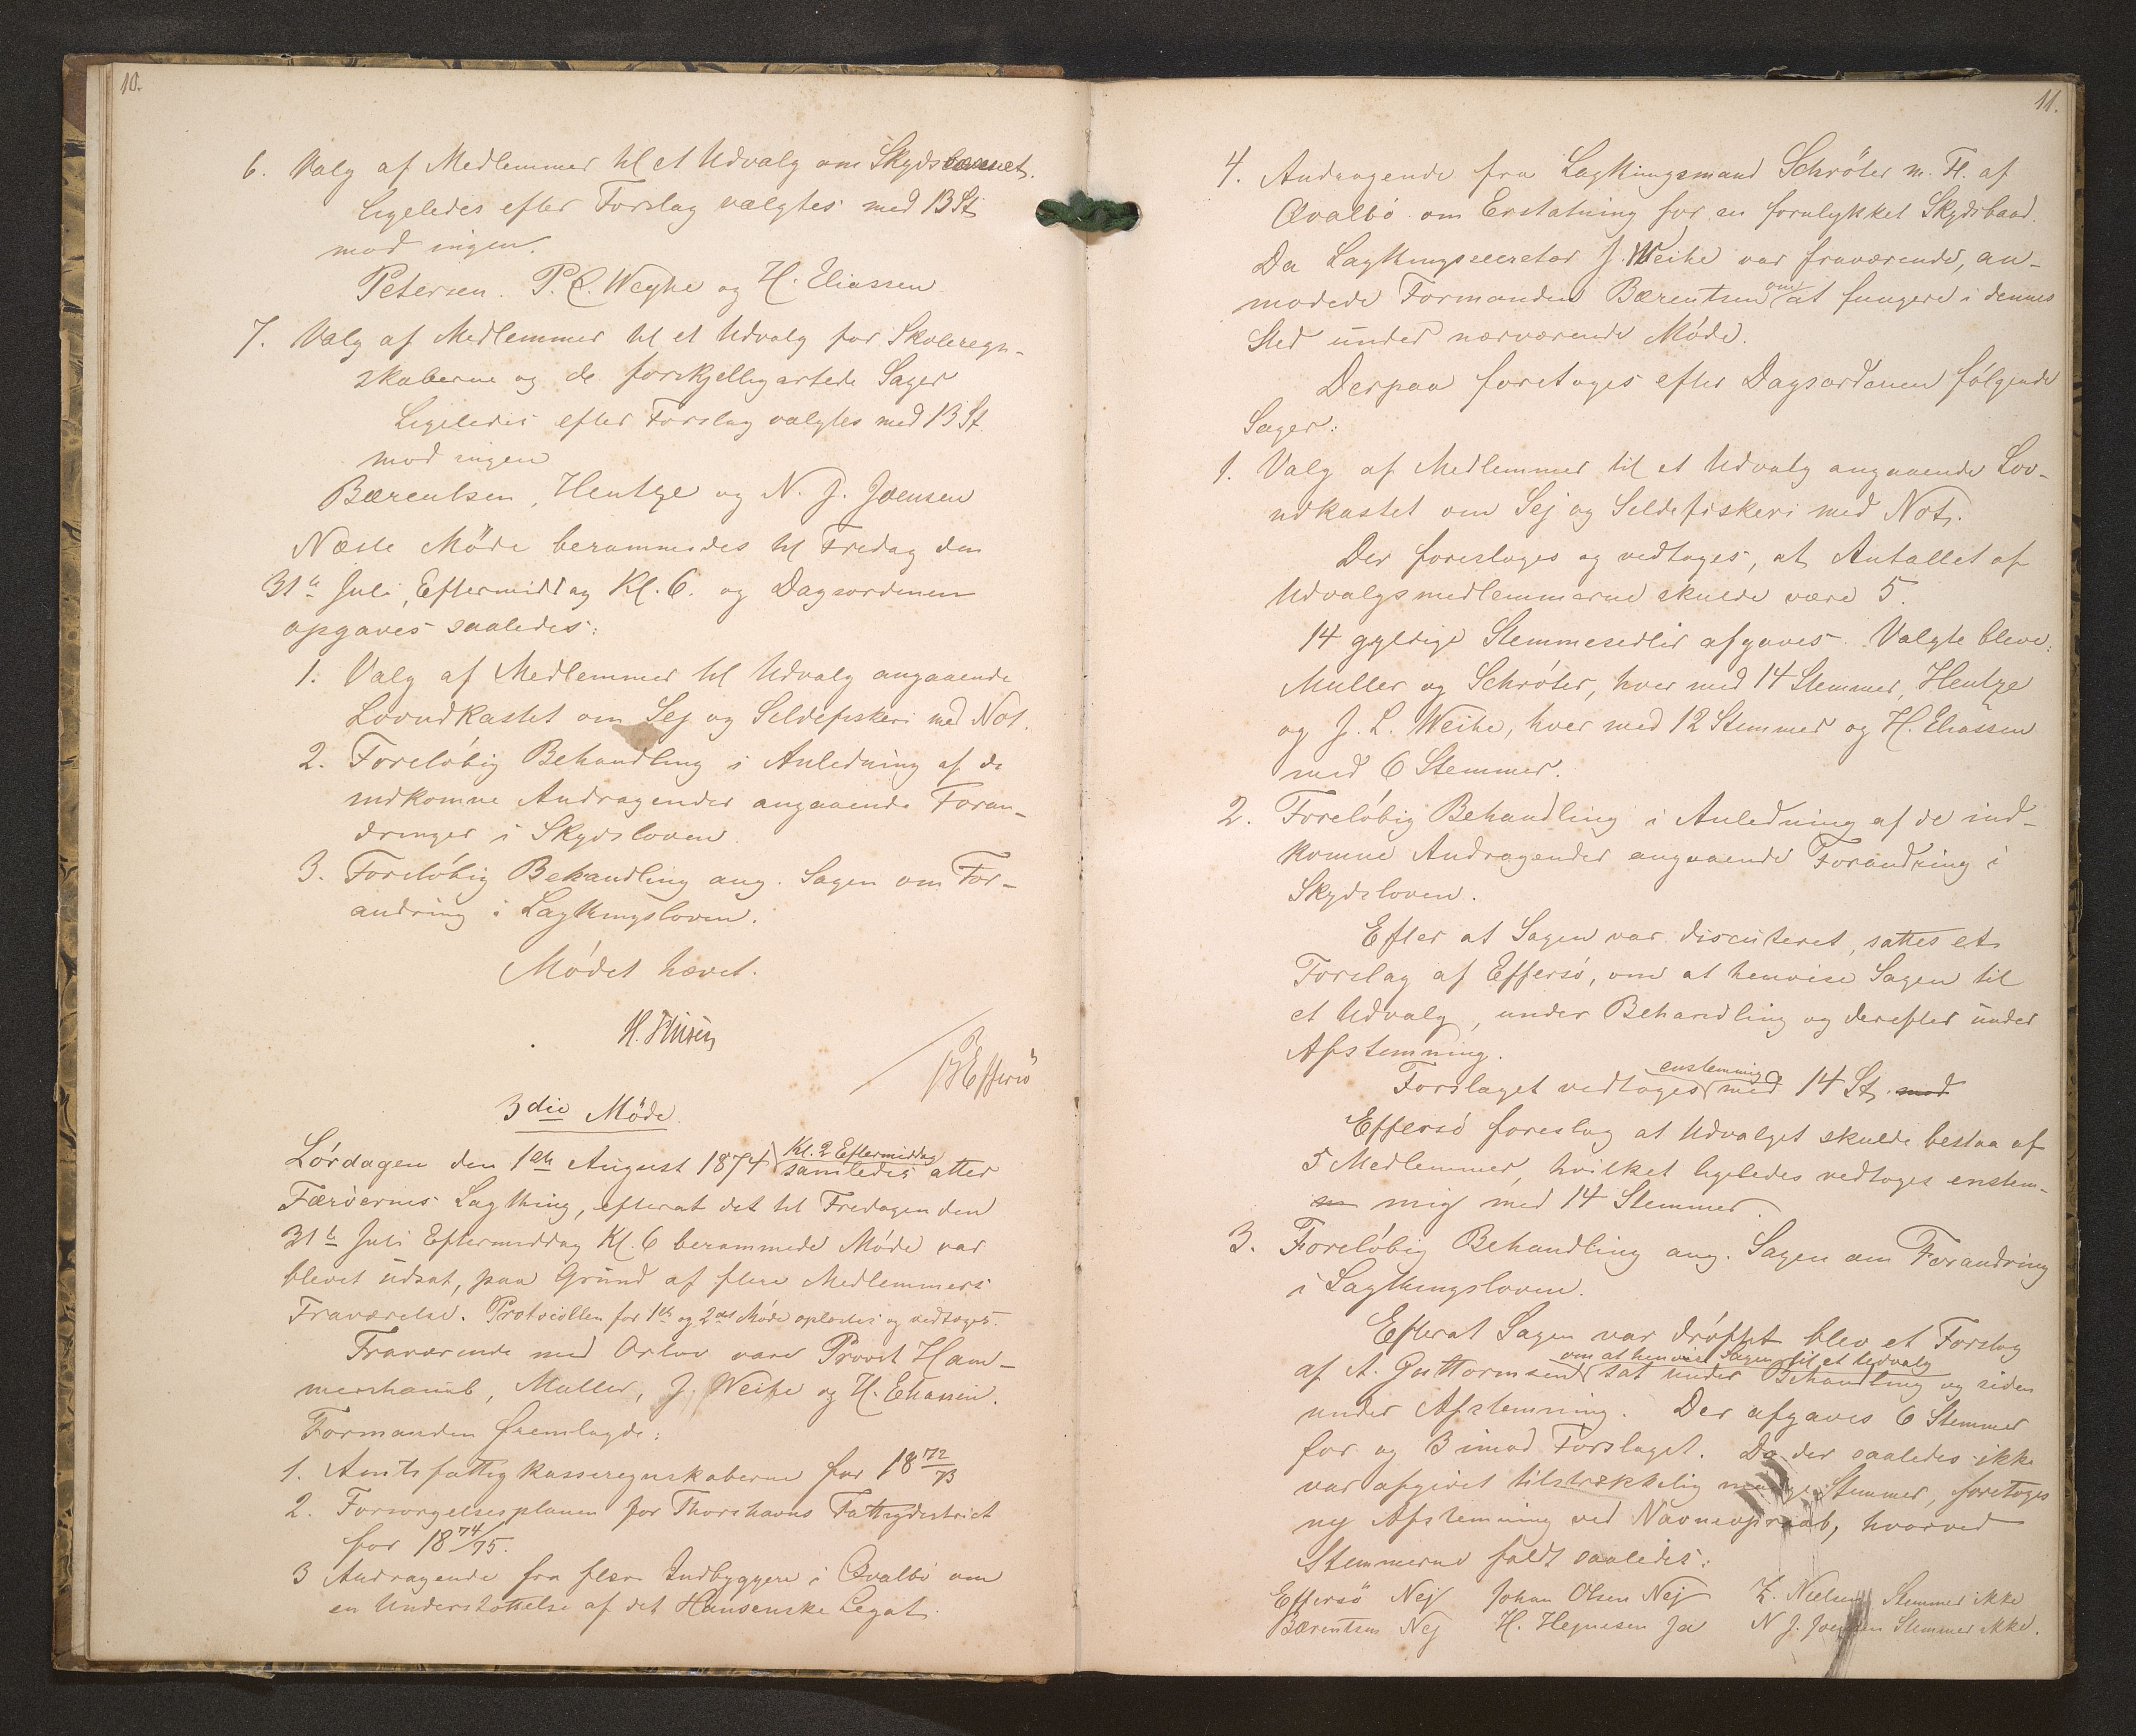 10.
6. Valg af Medlemmer til et Udvalg om Skydsvæsenet.
Ligeledes efter Forslag valgtes med 13 St.
mod ingen.
Petersen. P. C. Weyhe og H. Eliassen
7. Valg af Medlemmer til et Udvalg for Skoleregn-
skaberne og de forskjelligartede Sager
Ligeledes efter Forslag valgtes med 13 St.
mod ingen
Bærentsen, Hentze og N. J. Joensen
Næste Møde berammedes til Fredag den
31te Juli, Eftermiddag Kl. 6. og Dagsordenen
opgaves saaledes:
1. Valg af Medlemmer til Udvalg angaaende
Lovudkastet om Sej og Sildefiskeri med Not.
2. Foreløbig Behandling i Anledning af de
indkomne Andragender angaaende Foran-
dringer i Skydsloven.
3. Foreløbig Behandling ang. Sagen om For-
andring i Lagthingsloven.
Mødet hævet.
H. Finsen
Effersö
3die Møde.
Lørdagen den 1ste August 1874 Kl. 2 Eftermiddag samledes atter
Færøernes Lagthing, efterat det til Fredagen den
31te Juli Eftermiddag Kl. 6 berammede Møde var
blevet udsat, paa Grund af flere Medlemmers
Fraværelse. Protocollen for 1ste og 2det Møde oplæstes og vedtoges.
Fraværende med Orlov vare Provst Ham-
mershaimb, Müller, J. Weihe og H. Eliassen.
Formanden fremlagde:
1. Amtsfattigkasseregnskaberne for 1872/73
2. Forsørgelsesplanen for Thorshavns Fattigdistrict
for 1874/75.
3 Andragende fra flere Indbyggere i Qvalbö om
en Understøttelse af det Hansenske Legat.
11.
4. Andragende fra Lagthingsmand Schröter m. Fl. af
Qvalbö om Erstatning for en forulykket Skydsbaad.
Da Lagthingssecretær J. Weihe var fraværende, an-
modede Formanden Bærentsen om at fungere i dennes
Sted under nærværende Møde.
Derpaa foretoges efter Dagsordenen følgende
Sager:
1. Valg af Medlemmer til et Udvalg angaaende Lov-
udkastet om Sej og Sildefiskeri med Not.
Der foresloges og vedtoges, at Antallet af
Udvalgsmedlemmerne skulde være 5.
14 gyldige Stemmesedler afgaves. Valgte bleve:
Müller og Schröter, hver med 14 Stemmer, Hentze
og J. L. Weihe, hver med 12 Stemmer og H. Eliassen
med 6 Stemmer.
2. Foreløbig Behandling i Anledning af de ind-
komne Andragender angaaende Forandring i
Skydsloven.
Efter at Sagen var discuteret, sattes et
Forslag af Effersö, om at henvise Sagen til
et Udvalg, under Behandling og derefter under
Afstemning.
Forslaget vedtoges enstemmig med 14 St. mod
Effersö foreslog at Udvalget skulde bestaa af
5 Medlemmer, hvilket ligeledes vedtoges enstem-
mig med 14 Stemmer.
3. Foreløbig Behandling ang. Sagen om Forandring
i Lagthingsloven.
Efterat Sagen var drøftet blev et Forslag
af A. Guttormsen om at henvise Sagen til et Udvalg sat under Behandling og siden
under Afstemning. Der afgaves 6 Stemmer
for og 3 imod Forslaget. Da der saaledes ikke
var afgivet tilstrækkelig mange Stemmer, foretoges
ny Afstemning ved Navneopraab, hvorved
Stemmerne faldt saaledes:
Effersö Nej Johan Olsen Nej Z. Nielsen Stemmer ikke
Bærentsen Nej H. Heynesen Ja N J. Joensen Stemmer ikke.